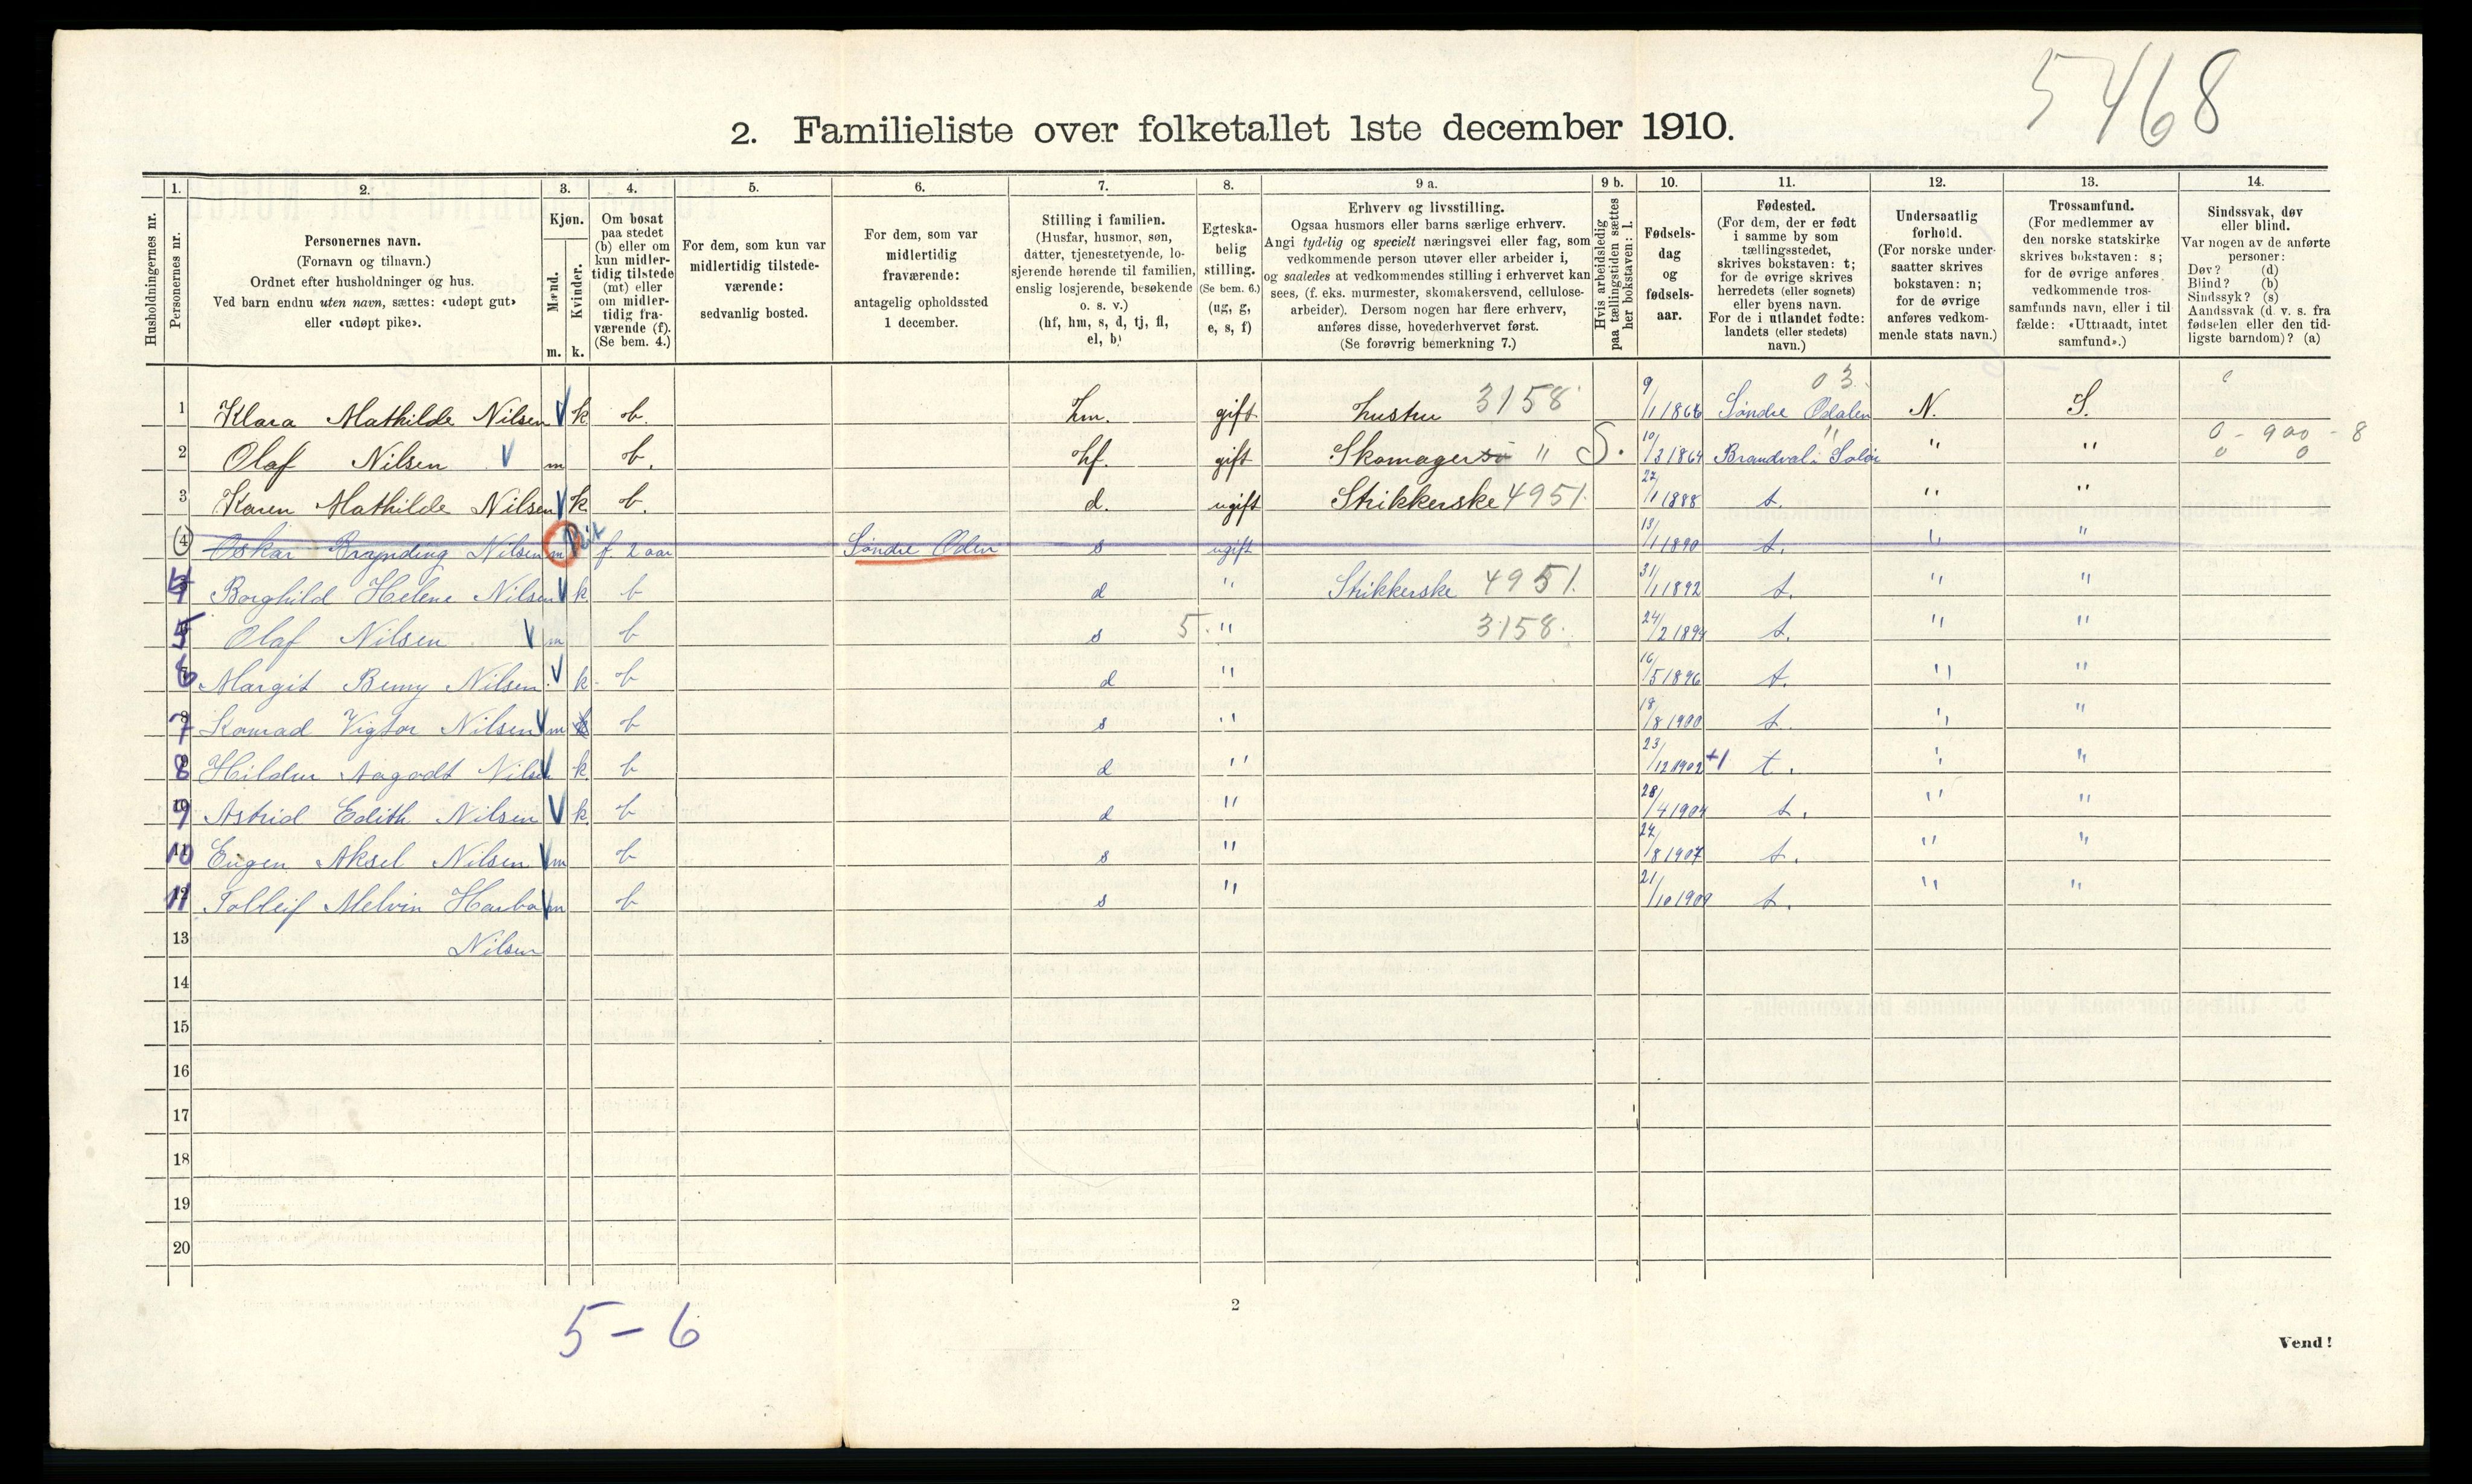 5468
2. Familieliste over folketallet 1ste december 1910.
Husholdningernes nr.
1. Personernes nr.
2. Personernes navn.
(Fornavn og tilnavn.)
Ordnet efter husholdninger og hus.
Ved barn endnu uten navn, sættes: «udøpt gut»
eller «udøpt pike».
3. Kjøn.
Mænd. m.
Kvinder. k.
4. Om bosat
paa stedet
(b) eller om
kun midler-
tidig tilstede
(mt) eller
om midler-
tidig fra-
værende (f).
(Se bem. 4.)
5. For dem, som kun var
midlertidig tilstede-
værende:
sedvanlig bosted.
6. For dem, som var
midlertidig
fraværende:
antagelig opholdssted
1 december.
7. Stilling i familien.
(Husfar, husmor, søn,
datter, tjenestetyende, lo-
sjerende hørende til familien,
enslig losjerende, besøkende
o. s. v.)
(hf, hm, s, d, tj, fl,
el, b)
8. Egteska-
belig
stilling.
(Se bem. 6.)
(ug, g,
e, s, f)
9 a. Erhverv og livsstilling.
Ogsaa husmors eller barns særlige erhverv.
Angi tydelig og specielt næringsvei eller fag, som
vedkommende person utøver eller arbeider i,
og saaledes at vedkommendes stilling i erhvervet kan
sees, (f. eks. murmester, skomakersvend, cellulose-
arbeider). Dersom nogen har flere erhverv,
anføres disse, hovederhvervet først.
(Se forøvrig bemerkning 7.)
9 b. Hvis arbeidsledig
paa tællingstiden sættes
her bokstaven: l.
10. Fødsels-
dag
og
fødsels-
aar.
11. Fødested.
(For dem, der er født
i samme by som
tællingsstedet,
skrives bokstaven: t;
for de øvrige skrives
herredets (eller sognets)
eller byens navn.
For de i utlandet fødte:
landets (eller stedets)
navn.)
12. Undersaatlig
forhold.
(For norske under-
saatter skrives
bokstaven: n;
for de øvrige
anføres vedkom-
mende stats navn.)
13. Trossamfund.
(For medlemmer av
den norske statskirke
skrives bokstaven: s;
for de øvrige anføres
vedkommende tros-
samfunds navn, eller i til-
fælde: «Uttraadt, intet
samfund».)
14. Sindssvak, døv
eller blind.
Var nogen av de anførte
personer:
Døv? (d)
Blind? (b)
Sindssyk? (s)
Aandssvak (d. v. s. fra
fødselen eller den tid-
ligste barndom)? (a)
03.
1 Klara Mathilde Nilsen V k b. hm. gift hustru 3158 9/1 1866 Søndre Odalen N. S.
0 - 900 - 8
2 Olaf Nilsen V m b. hf. gift Skomager " S. 10/3 1864 Brandval i Solør " " 0 0
3 Karen Mathilde Nilsen V k b. d. ugift Strikkerske 4951. 27/1 1888 t. " "
(4) Oskar Nilsen m f. 2 aar Søndre s ugift 13/1 1890 t. " "
4 Borghild Helene Nilsen V k b d " Strikkerske 4951. 31/1 1892 t. " "
5 Olaf Nilsen V m b s 5. " 3158. 24/2 1894 t. " "
6 Margit Benny Nilsen V k b d " 16/5 1896 t. " "
7 Konrad Vigtor Nilsen V m b s " 18/8 1900 t. " "
8 Hildur Aagodt Nilsen k b d " 23/12 1902 +1 t. " "
9 Astrid Edith Nilsen V k b d " 28/4 1904 t. " "
10 Eugen Aksel Nilsen V m b s " 24/8 1907 t. " "
11 Tolleif Melvin Harbo V m b s " 21/10 1909 t. " "
13 Nilsen
14
15
16
17
18
19
20
2
5-6
Vend!